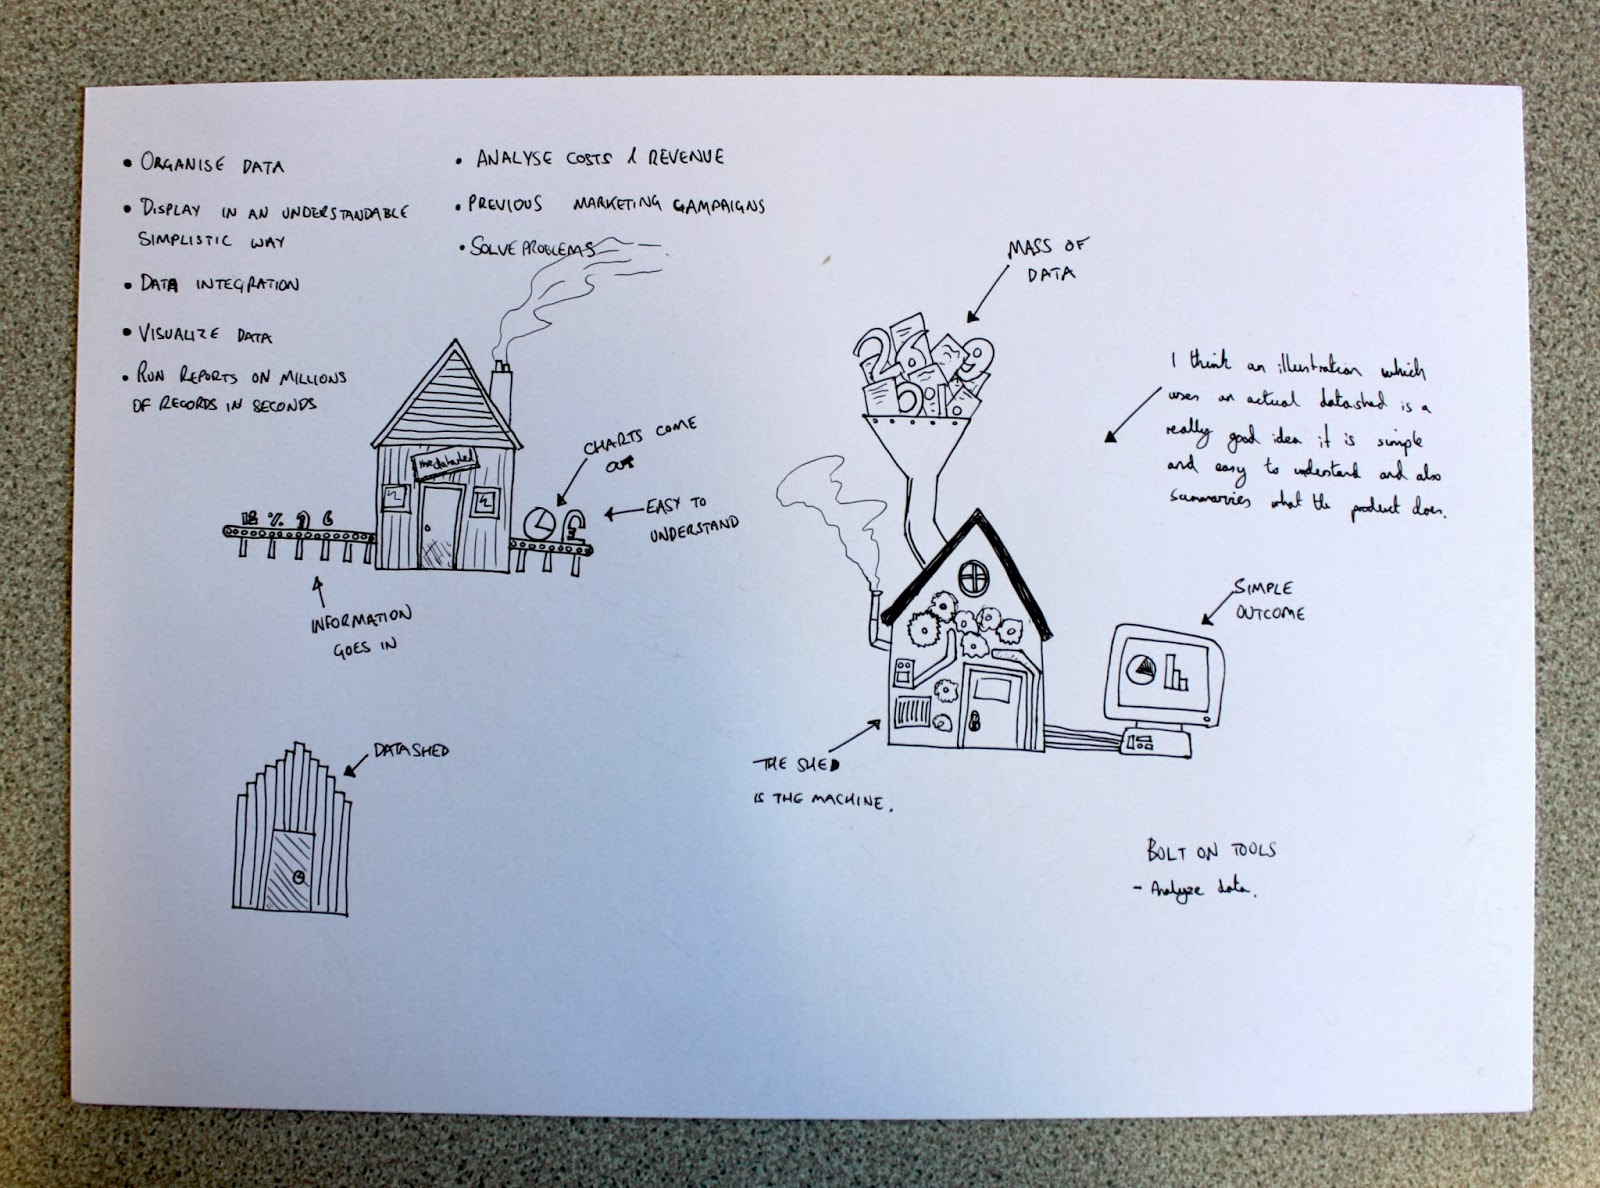 • ORGANISE DATA
• DISPLAY IN AN UNDERSTANDABLE
SIMPLISTIC WAY
• DATA INTEGRATION
• VISUALIZE DATA
• RUN REPORTS ON MILLIONS
OF RECORDS IN SECONDS
• ANALYSE COSTS & REVENUE
• PREVIOUS MARKETING CAMPAIGNS
• SOLVE PROBLEMS
the datashed
CHARTS COME
OUT
EASY TO
UNDERSTAND
18 % 9 6
£
INFORMATION
GOES IN
DATASHED
MASS OF
DATA
26 9
I think an illustration which
uses an actual datashed is a
really good idea it is simple
and easy to understand and also
summarries what the product does.
SIMPLE
OUTCOME
THE SHED
IS THE MACHINE.
BOLT ON TOOLS
- Analyze data.